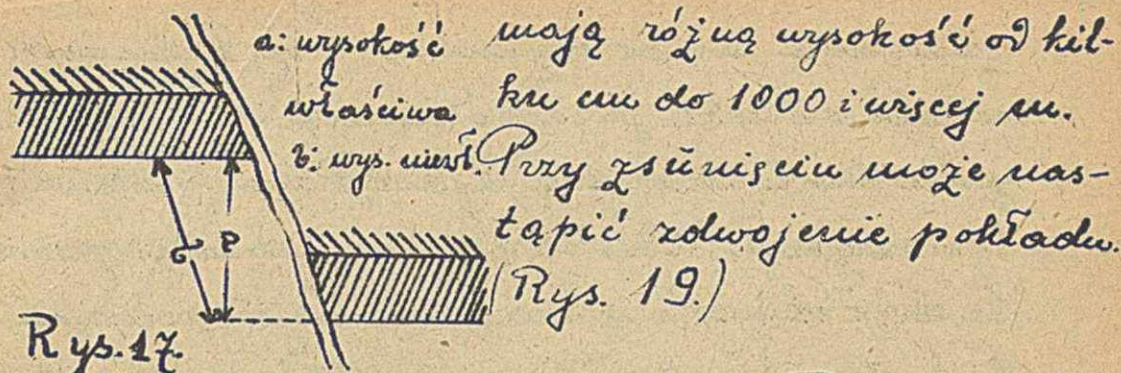 a: wysokość
właściwa
b: wys. niewł.
mają różną wysokość od kil-
ku cm do 1000 i więcej m.
Przy zsunięciu może nas-
tąpić zdwojenie pokładu.
(Rys. 19.)
Rys. 17.